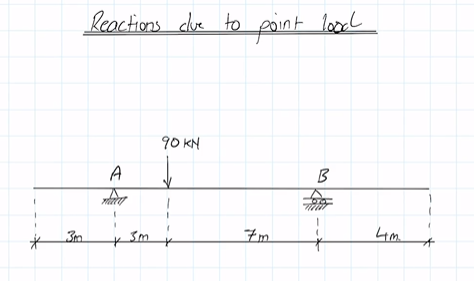 Reactions due to point load
90 KN
A
B
3m 3m 7m 4m